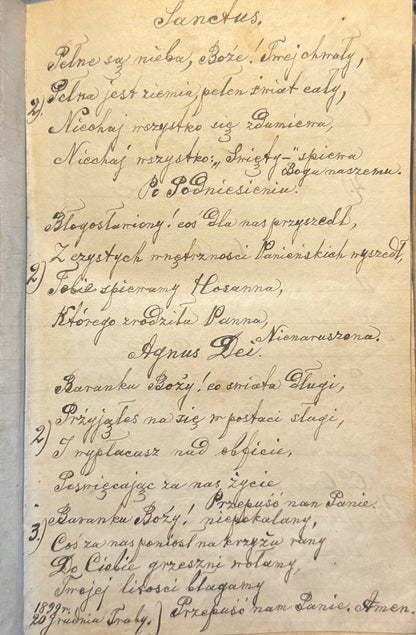 Sanctus.
Pełne są nieba, Boże! Twej chwały,
2) Pełna jest ziemia, pełen świat cały,
Niechaj wszystko się zdumiewa,
Niechaj wszystko: „Święty-" śpiewa
Bogu naszemu.
Po Podniesieniu.
Błogosławiony! coś dla nas przyszedł,
Z czystych wnętrzności Panieńskich wyszedł,
2) Tobie śpiewamy Hosanna,
Którego zrodziła Panna,
Nienaruszona.
Agnus Dei.
Baranku Boży! co świata długi,
Przyjąłeś na się w postaci sługi,
2) I wypłacasz nad obficie,
Poświęcając za nas życie
Przepuść nam Panie.
3) Baranku Boży! niepokalany,
Coś za nas poniósł na krzyżu rany
Do Ciebie grzeszni wołamy,
Twojej litości błagamy
Przepuść nam Panie. Amen.
1899 r.
20 Grudnia Traby.